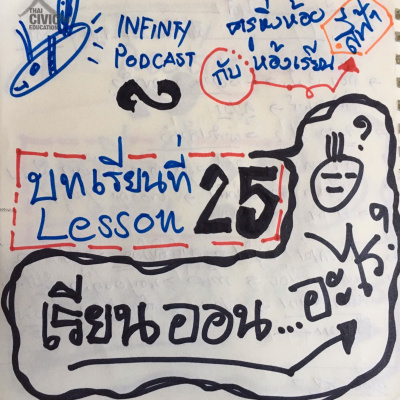 THAI
CIVIC
EDUCATION
INFINTY
PODCAST
ครูหิ่งห้อย
กับ ห้องเรียน
สีฟ้า
บทเรียนที่
Lesson 25
เรียนออน...อะไร
?
?